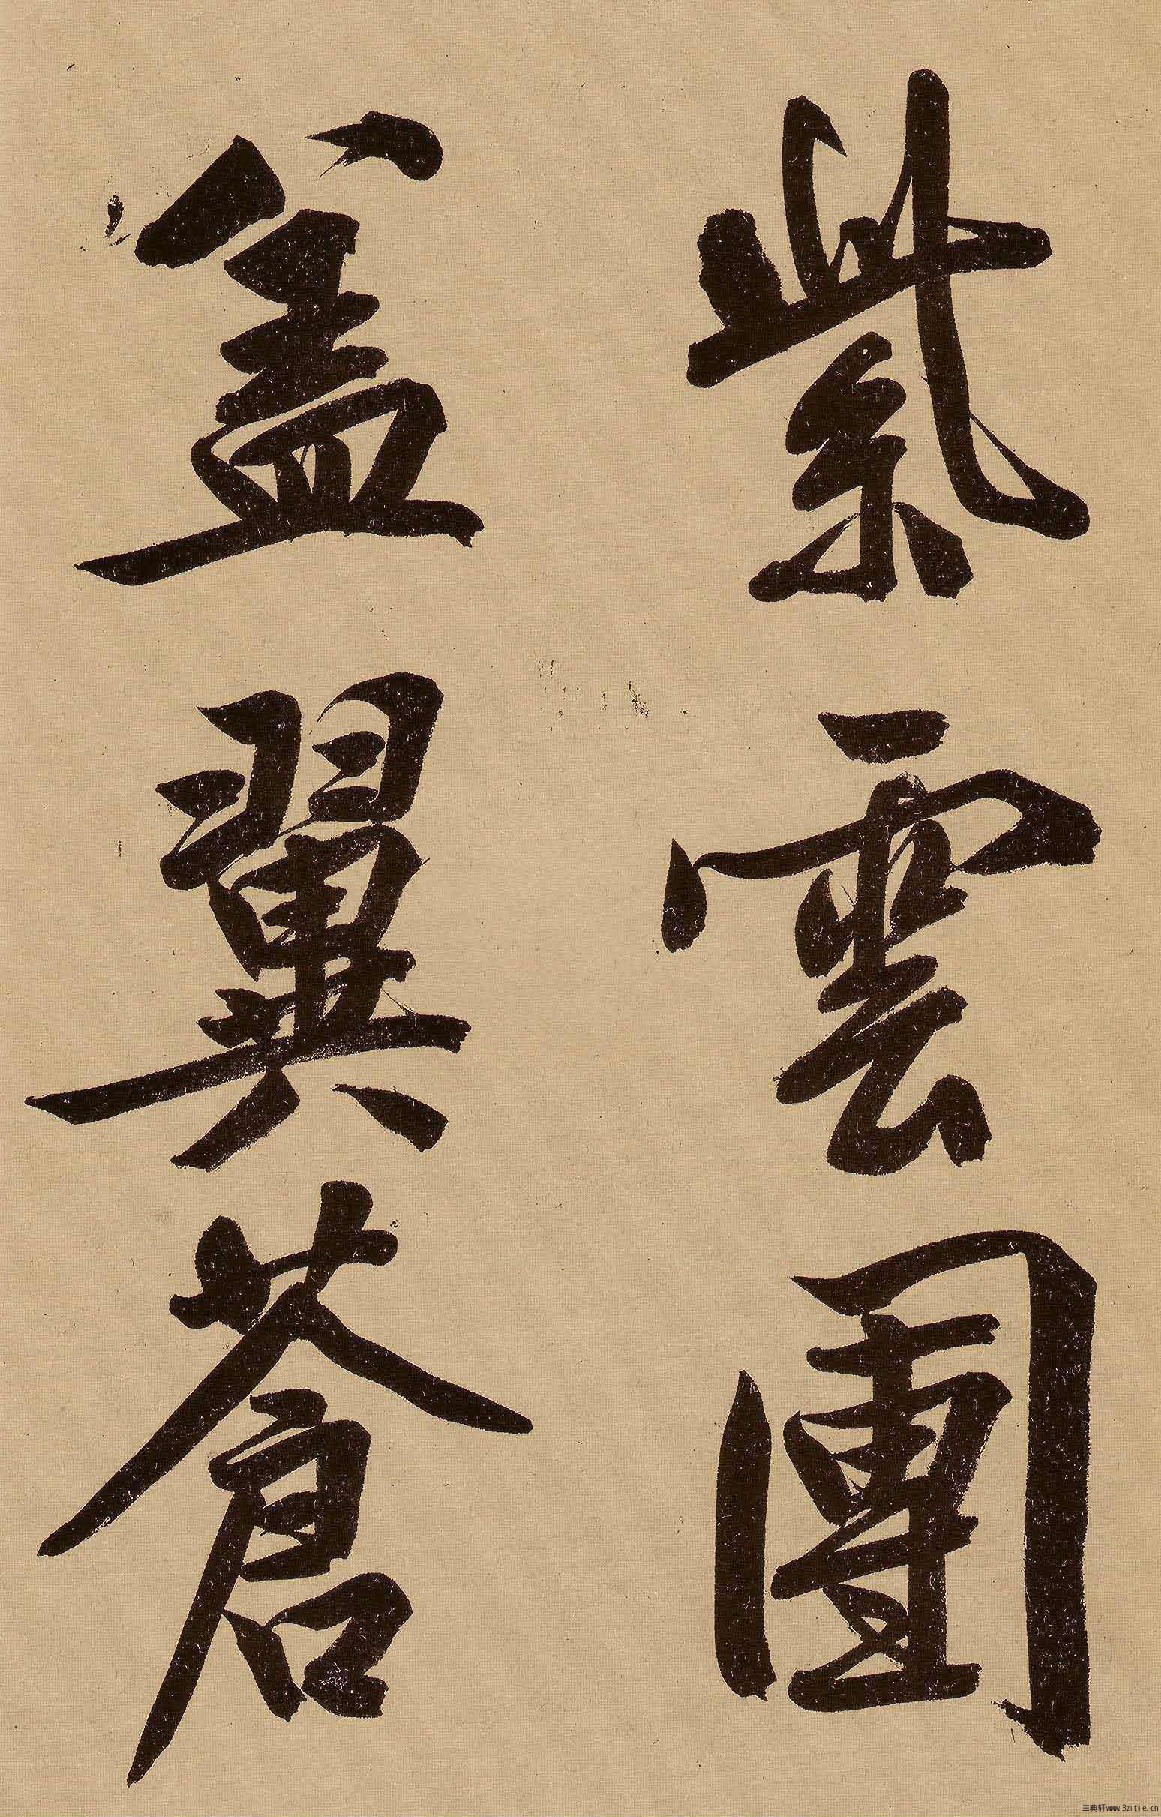 紫雲團
盖翼蒼
三典轩www.3zitie.cn